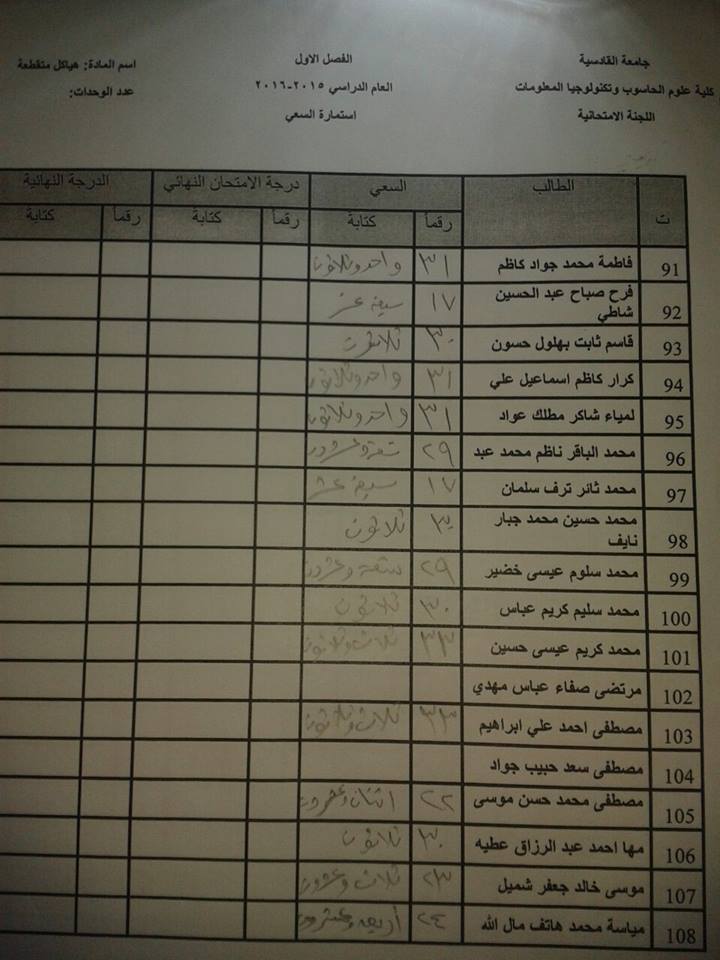 جامعة القادسية
كلية علوم الحاسوب وتكنولوجيا المعلومات
اللجنة الامتحانية
الفصل الاول
العام الدراسي ٢٠١٥-٢٠١٦
استمارة السعي
اسم المادة: هياكل متقطعة
عدد الوحدات:
ت الطالب السعي درجة الامتحان النهائي الدرجة النهائية
رقماً كتابة رقماً كتابة رقماً كتابة
91 فاطمة محمد جواد كاظم ٣١ واحد وثلاثون
92 فرح صباح عبد الحسين ١٧ سبعة عشر
شاطي
93 قاسم ثابت بهلول حسون ٣٠ ثلاثون
94 كرار كاظم اسماعيل علي ٣١ واحد وثلاثون
95 لمياء شاكر مطلك عواد ٣١ واحد وثلاثون
96 محمد الباقر ناظم محمد عبد ٢٩ تسعة وعشرون
97 محمد ثائر ترف سلمان ١٧ سبعة عشر
98 محمد حسين محمد جبار ٣٠ ثلاثون
نايف
99 محمد سلوم عيسى خضير ٢٩ تسعة وعشرون
100 محمد سليم كريم عباس ٣٠ ثلاثون
101 محمد كريم عيسى حسين ٣٣ ثلاث وثلاثون
102 مرتضى صفاء عباس مهدي
103 مصطفى احمد علي ابراهيم ٣٣ ثلاث وثلاثون
104 مصطفى سعد حبيب جواد
105 مصطفى محمد حسن موسى ٢٢ اثنان وعشرون
106 مها احمد عبد الرزاق عطيه ٣٠ ثلاثون
107 موسى خالد جعفر شميل ٢٣ ثلاث وعشرون
108 مياسة محمد هاتف مال الله ٢٤ أربعة وعشرون